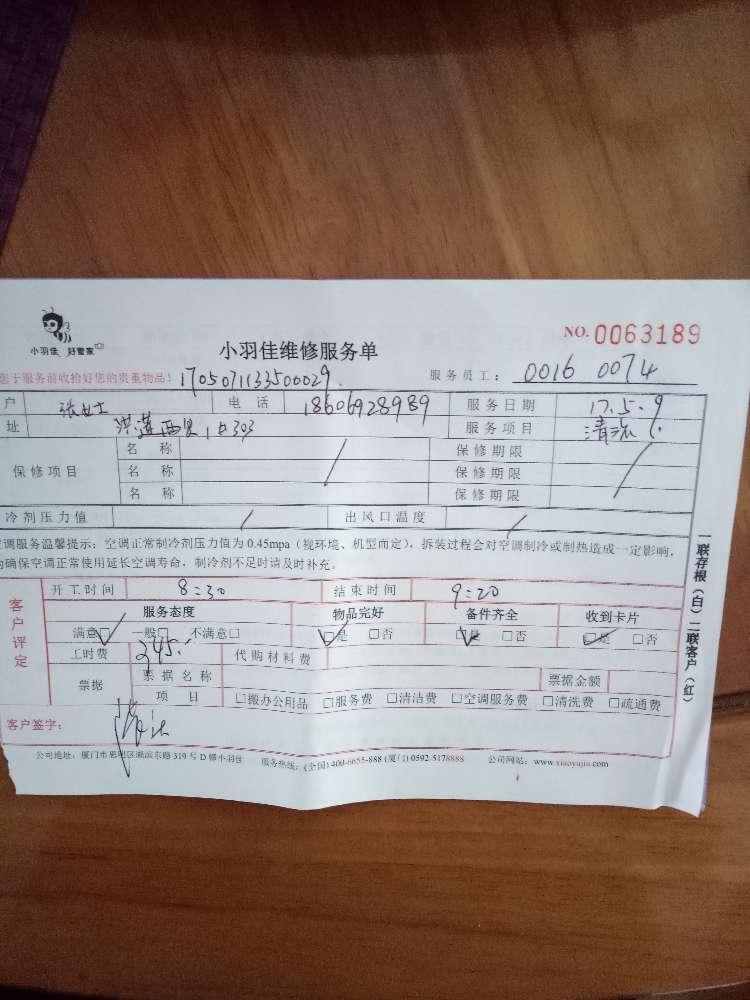 小羽佳 好管家
小羽佳维修服务单
NO. 0063189
您于服务前收拾好您的贵重物品! 170507113350029
服务员工: 0016 0074
户 张女士 电话 18606928989 服务日期 17.5.9
址 洪莲西里 303 服务项目 清洗
保修项目
名称 保修期限
名称 保修期限
名称 保修期限
冷剂压力值 / 出风口温度 /
调服务温馨提示:空调正常制冷剂压力值为0.45mpa(视环境、机型而定),拆装过程会对空调制冷或制热造成一定影响,
确保空调正常使用延长空调寿命,制冷剂不足时请及时补充。
开工时间 8:30 结束时间 9:20
客户评定
服务态度 物品完好 备件齐全 收到卡片
满意☑ 一般□ 不满意□ ☑是 □否 ☑是 □否 ☑是 □否
工时费 245. 代购材料费
票据 票据名称 票据金额
项目 □搬办公用品 □服务费 □清洁费 □空调服务费 □清洗费 □疏通费
客户签字:
公司地址:厦门市思明区湖滨东路319号D幢小羽佳 服务热线:(全国)400-6655-888(厦门)0592-5178888 公司网站:www.xiaoyujia.com
一联存根(白)二联客户(红)